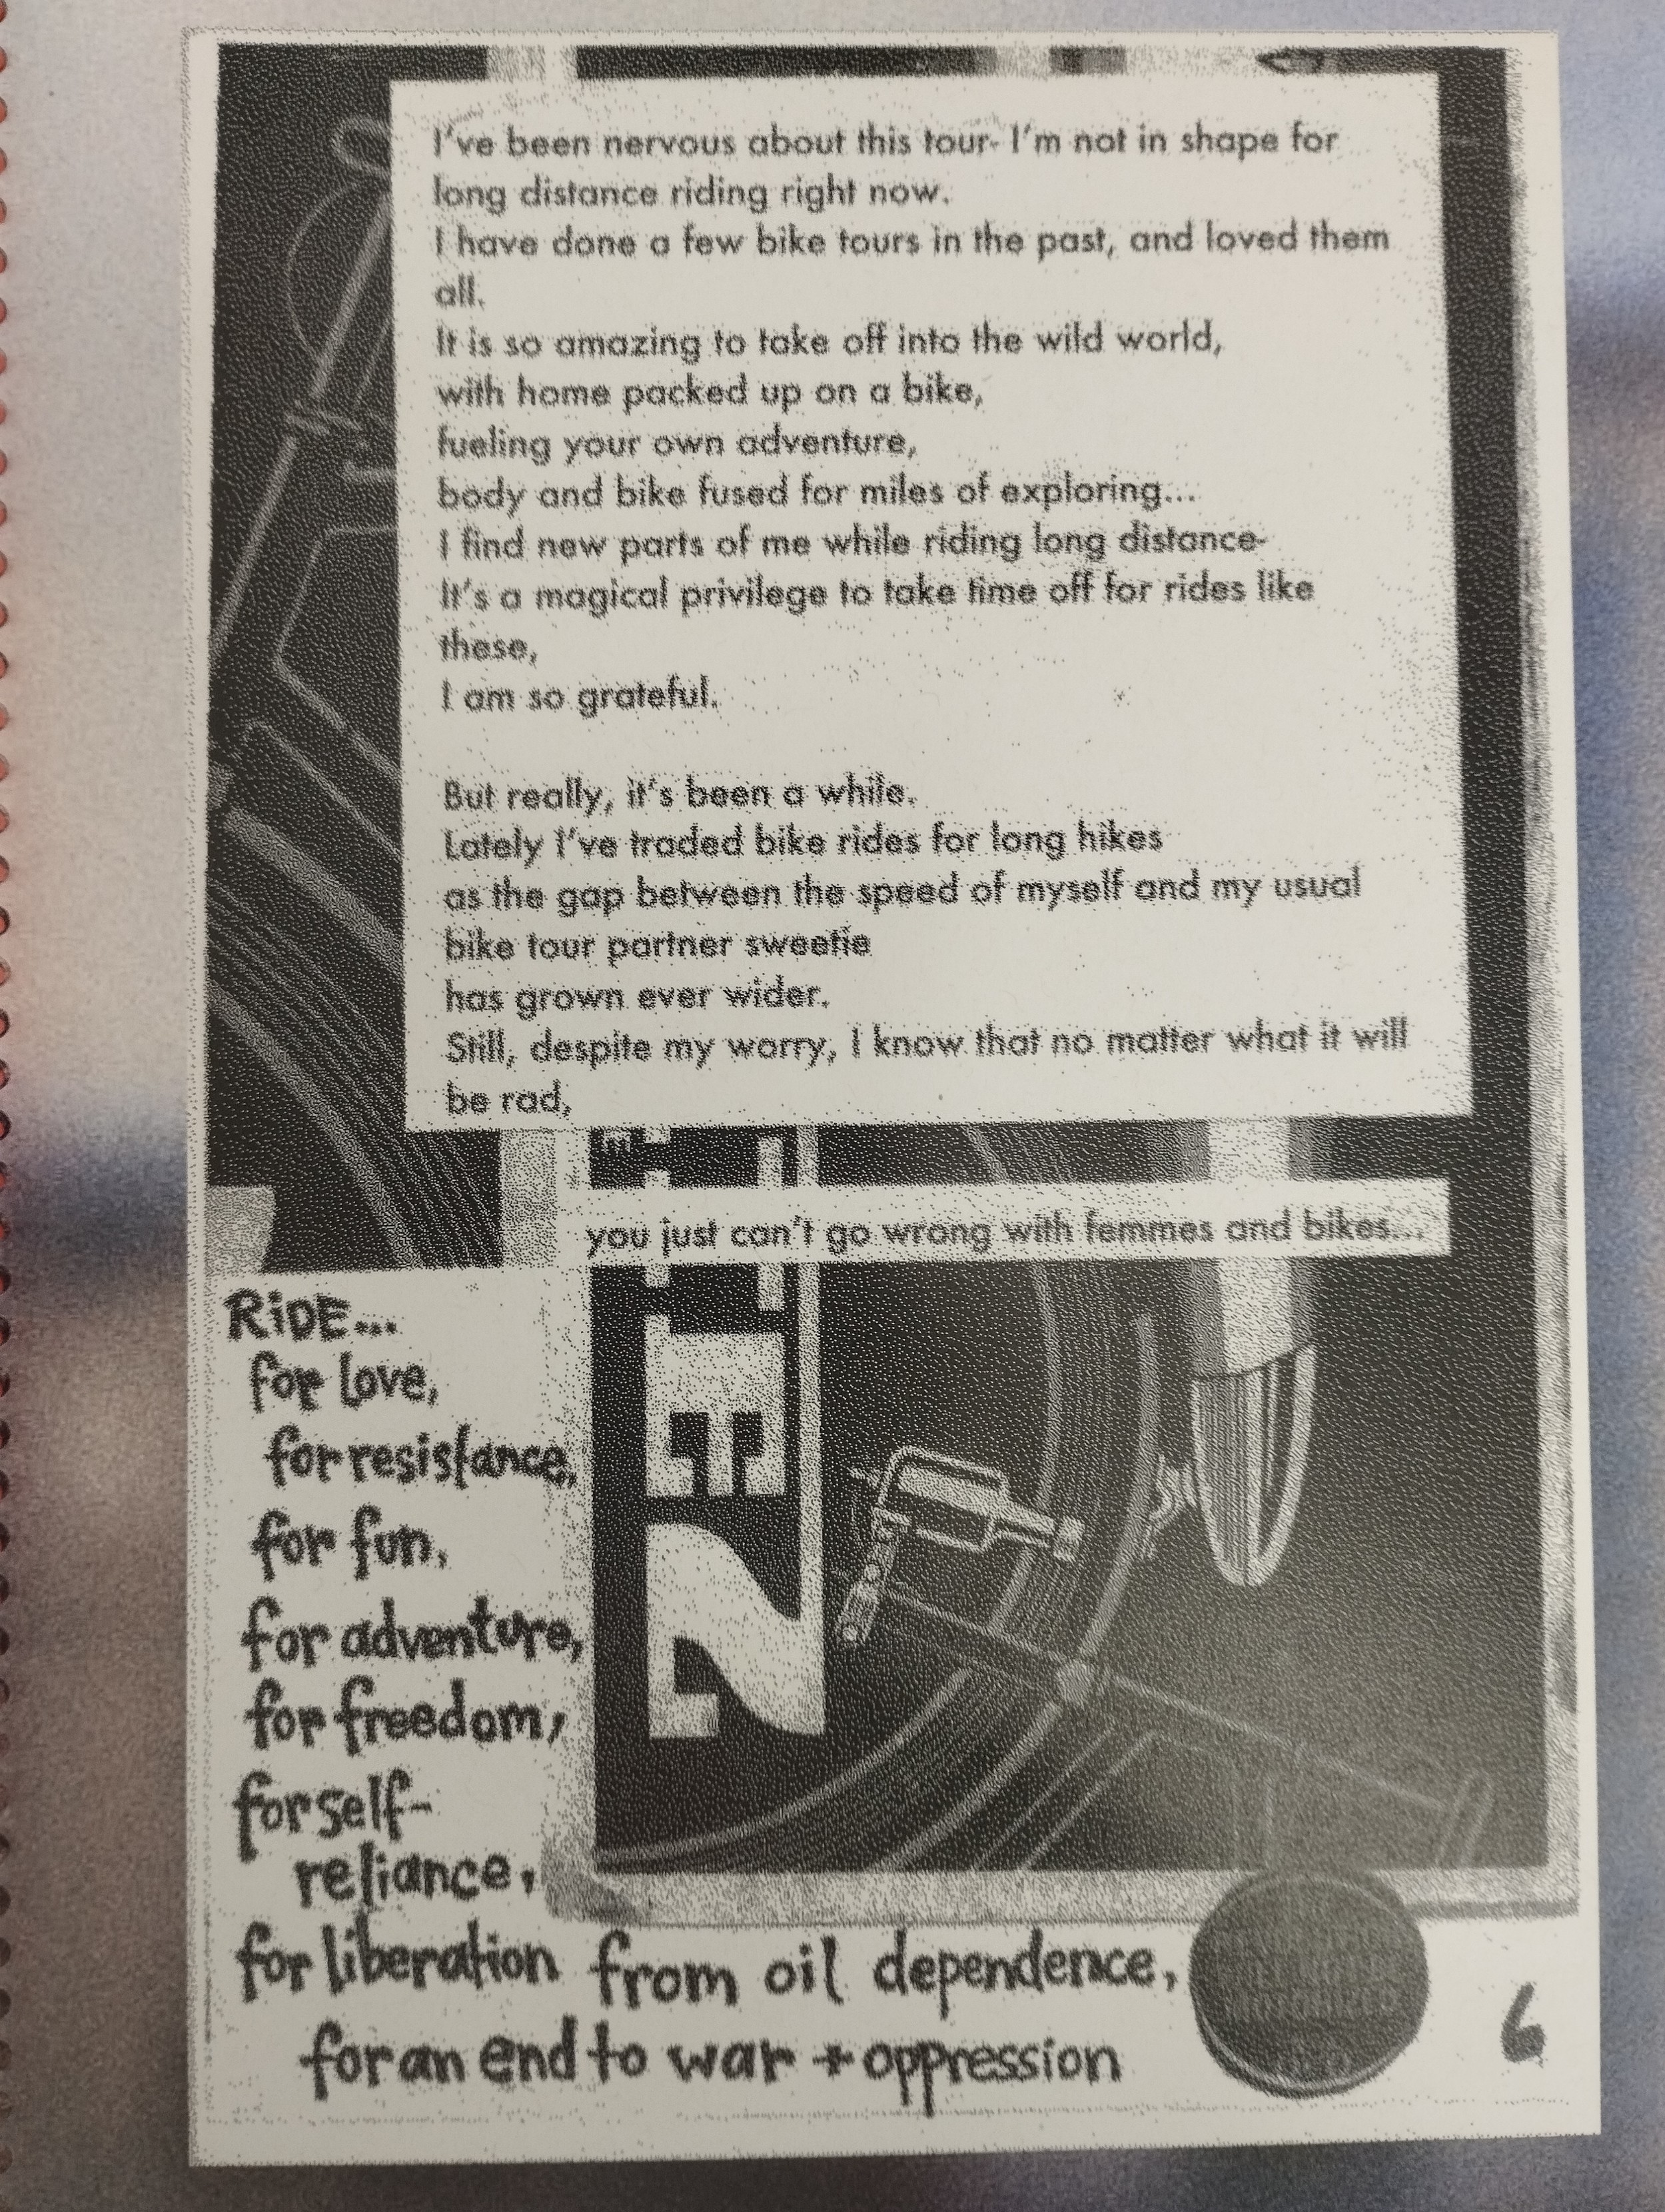 I've been nervous about this tour- I'm not in shape for
long distance riding right now.
I have done a few bike tours in the past, and loved them
all.
It is so amazing to take off into the wild world,
with home packed up on a bike,
fueling your own adventure,
body and bike fused for miles of exploring...
I find new parts of me while riding long distance-
It's a magical privilege to take time off for rides like
these,
I am so grateful.
But really, it's been a while.
Lately I've traded bike rides for long hikes
as the gap between the speed of myself and my usual
bike tour partner sweetie
has grown ever wider.
Still, despite my worry, I know that no matter what it will
be rad,
you just can't go wrong with femmes and bikes...
RiDE...
for love,
for resistance,
for fun,
for adventure,
for freedom,
for self-
reliance,
for liberation from oil dependence,
for an end to war + oppression
6